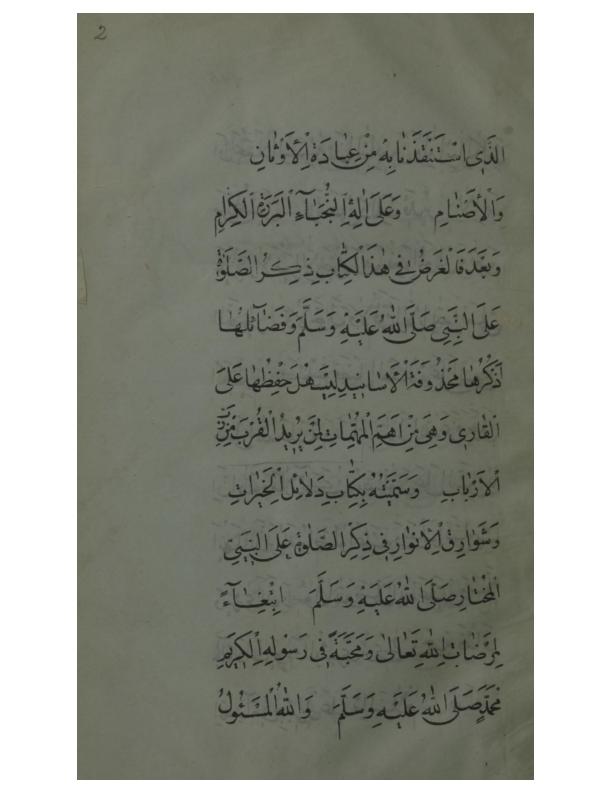 2
الَّذِي اسْتَنْقَذَنَا بِهِ مِنْ عِبَادَةِ الْأَوْثَانِ
وَالْأَصْنَامِ وَعَلَى اٰلِهِ النُّجَبَآءِ الْبَرَرَةِ الْكِرَامِ
وَبَعْدَ فَالْغَرَضُ فِي هٰذَا الْكِتَابِ ذِكْرُ الصَّلٰوةِ
عَلَى النَّبِيِّ صَلَّى اللهُ عَلَيْهِ وَسَلَّمَ وَفَضَآئِلُهَا
اَذْكُرُهَا مَحْذُوفَةَ الْأَسَانِيدِ لِيَسْهُلَ حِفْظُهَا عَلَى
الْقَارِي وَهِيَ مِنْ اَهَمِّ الْمُهِمَّاتِ لِمَنْ يُرِيدُ الْقُرْبَ مِنْ رَبِّ
الْأَرْبَابِ وَسَمَّيْتُهُ بِكِتَابِ دَلَائِلِ الْخَيْرَاتِ
وَشَوَارِقِ الْأَنْوَارِ فِي ذِكْرِ الصَّلٰوةِ عَلَى النَّبِيِّ
الْمُخْتَارِ صَلَّى اللهُ عَلَيْهِ وَسَلَّمَ ابْتِغَآءً
لِمَرْضَاتِ اللهِ تَعَالٰى وَمَحَبَّةً فِي رَسُولِهِ الْكَرِيمِ
مُحَمَّدٍ صَلَّى اللهُ عَلَيْهِ وَسَلَّمَ وَاللهُ الْمَسْئُولُ